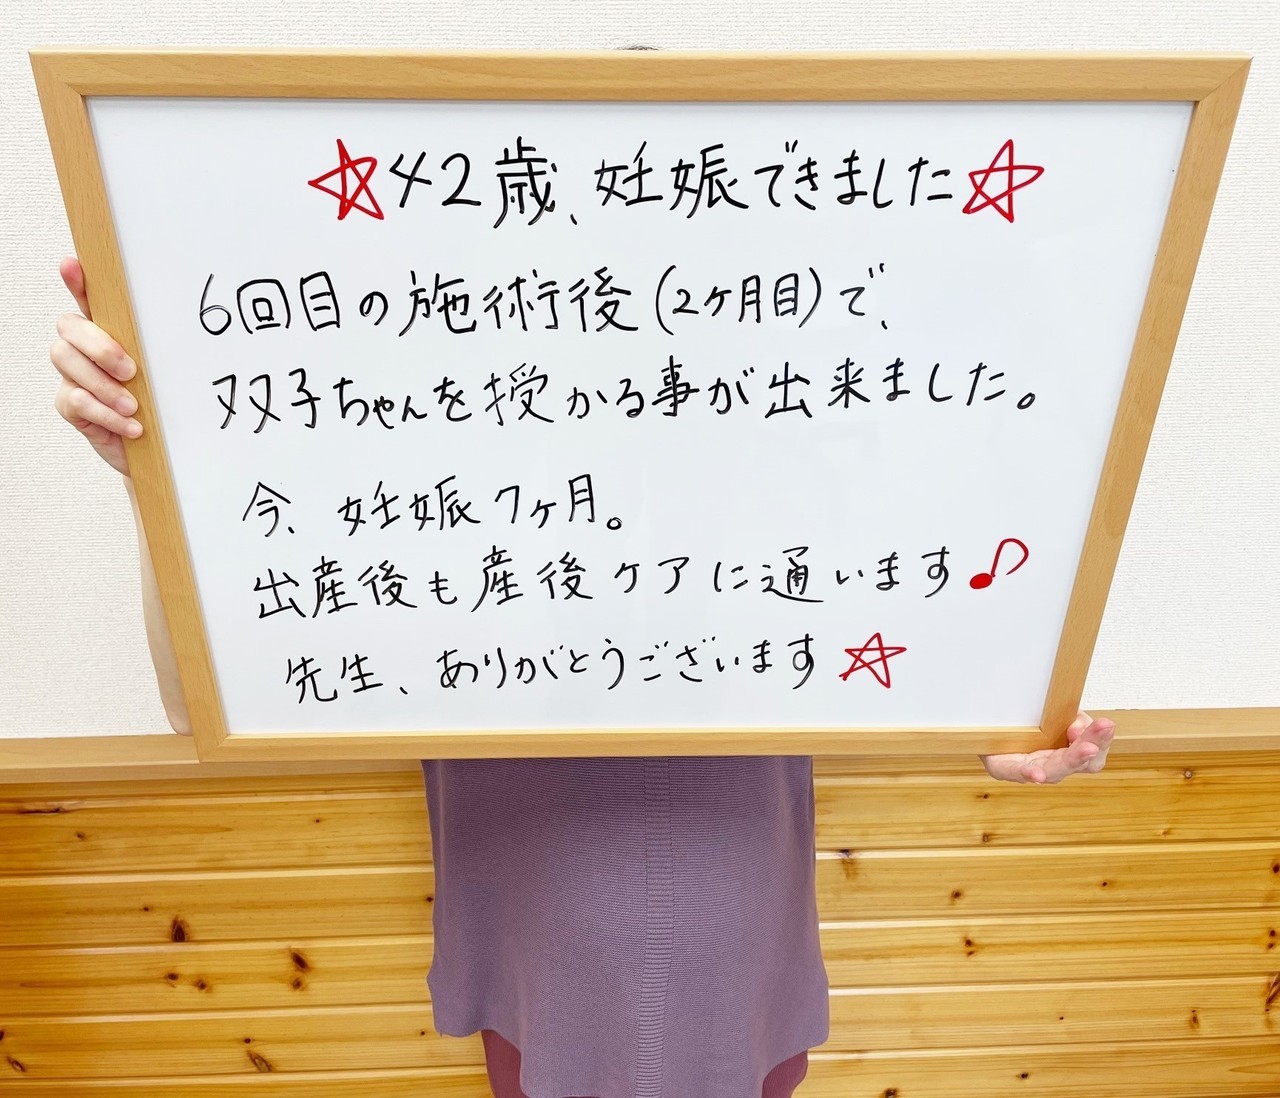 ☆42歳、妊娠できました☆
6回目の施術後(2ヶ月目)で、
双子ちゃんを授かる事が出来ました。
今、妊娠7ヶ月。
出産後も産後ケアに通います♪
先生、ありがとうございます☆